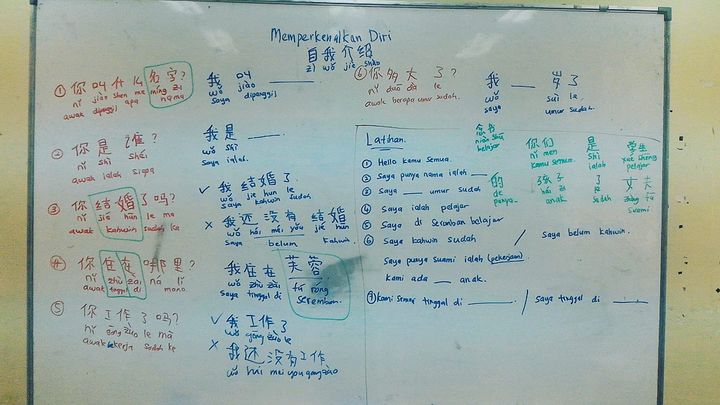 Memperkenalkan Diri
自我介绍
zì wǒ jiè shào
① 你叫什么名字?
nǐ jiào shen me míng zi
awak dipanggil apa nama
我叫 ____
wǒ jiào
saya dipanggil
② 你是谁?
nǐ shì shéi
awak ialah siapa
我是 ____.
wǒ shì
saya ialah.
③ 你结婚了吗?
nǐ jié hūn le ma
awak kahwin sudah ke
✓ 我结婚了
wǒ jié hun le
saya kahwin sudah
✗ 我还没有结婚
wǒ hái méi yǒu jié hūn
saya belum kahwin
④ 你住在哪里?
nǐ zhù zài nǎ lǐ
awak tinggal di mana
我住在芙蓉
wǒ zhù zài fú róng
saya tinggal di seremban.
⑤ 你工作了吗?
nǐ gōng zuò le mā
awak bekerja sudah ke
✓ 我工作了
wǒ gōng zuò le
✗ 我还没有工作
wǒ hái mei you gong zuò
⑥ 你多大了?
nǐ duō dà le
awak berapa umur sudah.
我 ____ 岁了
wǒ suì le
saya umur sudah.
Latihan.
念书
niàn shū
belajar
你们 是 学生
nǐ men shì xué sheng
kamu semua. ialah pelajar
的 孩子 了 丈夫
de hái zi le zhàng fū
punya. anak sudah suami
① Hello kamu semua.
② Saya punya nama ialah ____
③ Saya ____ umur sudah
④ Saya ialah pelajar
⑤ Saya di Seremban belajar
⑥ Saya kahwin sudah / Saya belum kahwin.
Saya punya suami ialah (pekerjaan).
Kami ada ____ anak.
⑦ Kami semua tinggal di ____. / Saya tinggal di ____.